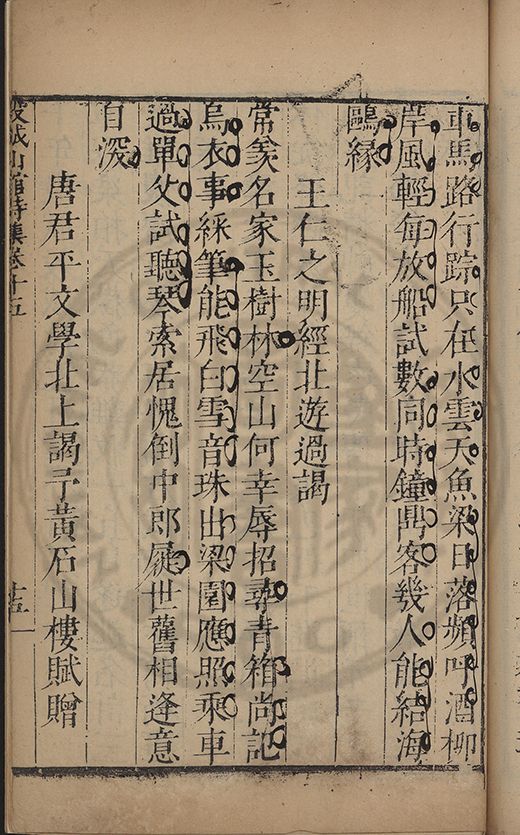 車馬路行踪只在水雲天魚梁日落頻呼酒柳
岸風輕每放船試數同時鐘鼎客幾人能結海
鷗緣
王仁之明經北遊過謁
常羨名家玉樹林空山何幸辱招尋青箱尚記
烏衣事綵筆能飛白雪音珠出梁園應照乘車
過單父試聽琴索居愧倒中郎屣世舊相逢意
自深
唐君平文學北上謁予黃石山樓賦贈
城山館詩集卷十五
十五